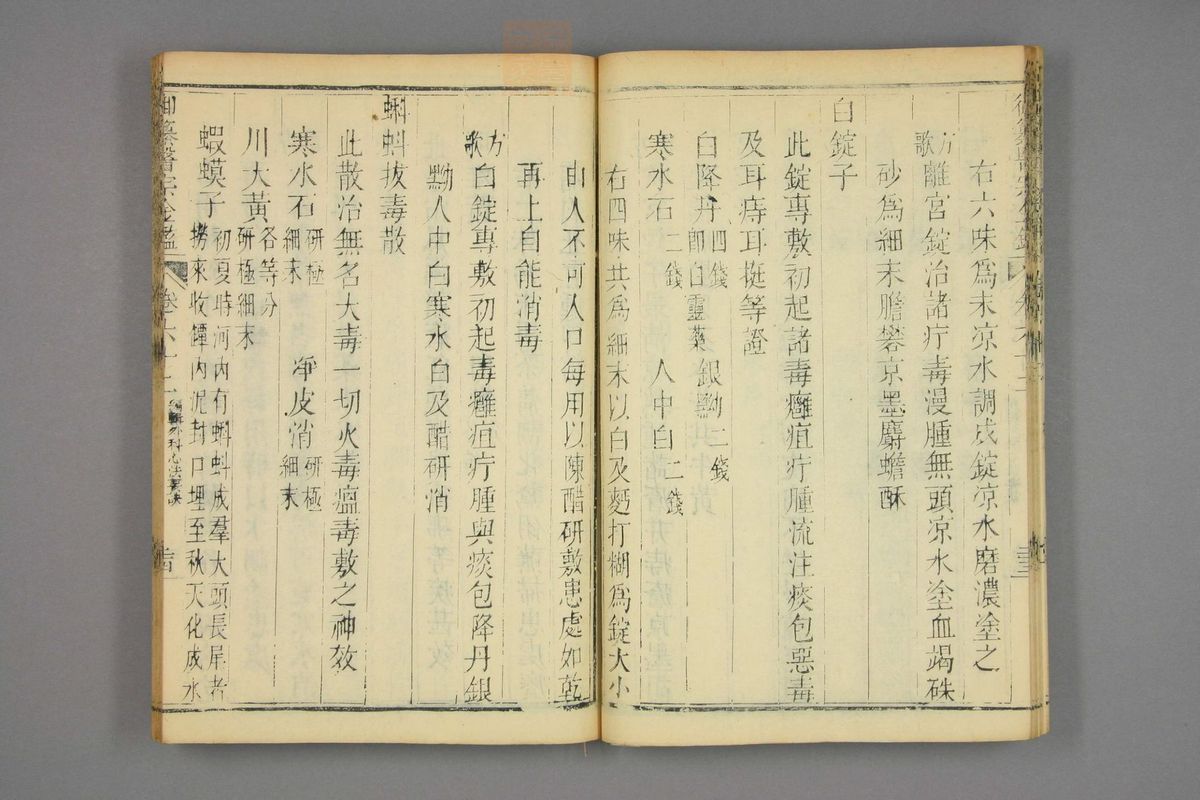 右六味為末凉水調成錠凉水磨濃塗之
方歌 離宮錠治諸疔毒漫腫無頭凉水塗血竭硃
砂為細末膽礬京墨麝蟾酥
白錠子
此錠專敷初起諸毒癰疽疔腫流注痰包惡毒
及耳痔耳挺等證
白降丹四錢即白靈藥 銀黝二錢
寒水石二錢 人中白二錢
右四味共為細末以白及麪打糊為錠大小
由人不可入口每用以陳醋研敷患處如乾
再上自能消毒
方歌 白錠專敷初起毒癰疽疔腫與痰包降丹銀
黝人中白寒水白及醋研消
蝌蚪拔毒散
此散治無名大毒一切火毒瘟毒敷之神效
寒水石研極細末 淨皮消研極細末
川大黃各等分研極細末
蝦蟆子初夏時河內有蝌蚪成羣大頭長尾者撈來收罈內泥封口埋至秋天化成水
御纂醫宗金鑑 卷六十二 編輯外科心法要訣